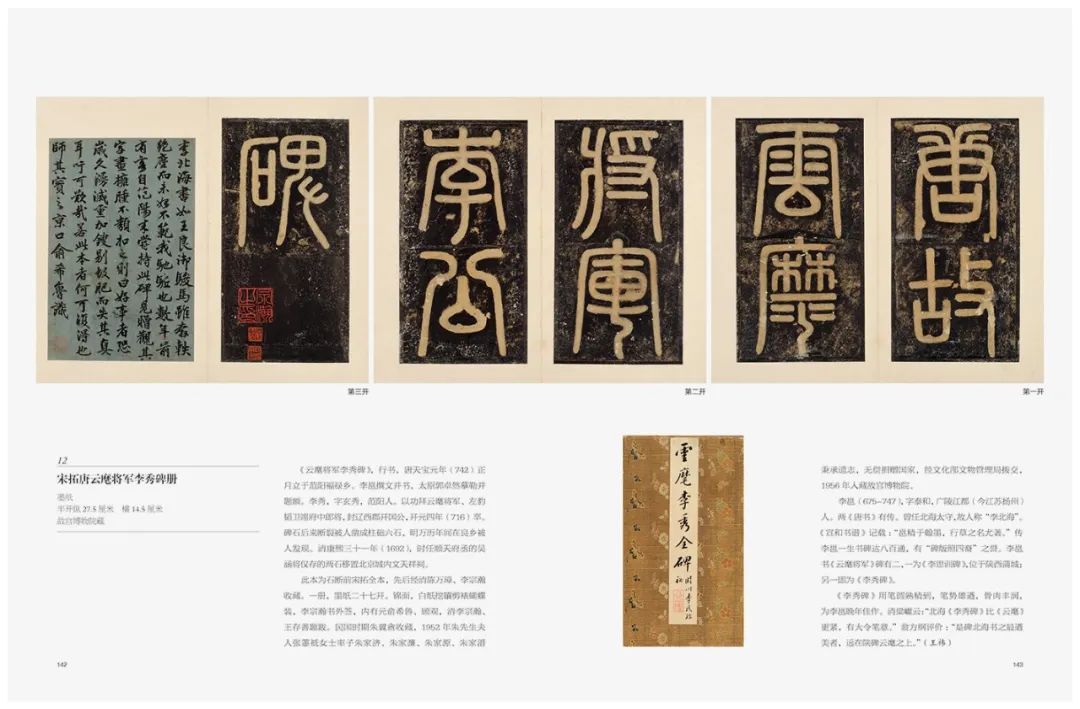 唐故
雲麾
將軍
李公
碑
李北海書如王良御駿馬雖奔軼
絕塵而未始不範我馳驅也數年前
有客自范陽來嘗持此碑見贈觀其
字畫擁腫不類扣之則曰好事者恐
歲久漫滅重加鐫剔故肥而失其真
耳吁可歎哉若此本者何可復得也
師其寶之京口俞希魯識
第三开
第二开
第一开
12
宋拓唐云麾将军李秀碑册
墨纸
半开纵 27.5 厘米 横 14.5 厘米
故宫博物院藏
《云麾将军李秀碑》，行书，唐天宝元年（742）正
月立于范阳福禄乡。李邕撰文并书，太原郭卓然摹勒并
题额。李秀，字玄秀，范阳人。以功拜云麾将军、左豹
韬卫翊府中郎将，封辽西郡开国公，开元四年（716）卒。
碑石后来断裂被人凿成柱础六石，明万历年间在良乡被
人发现。清康熙三十一年（1692），时任顺天府丞的吴
涵将仅存的两石移置北京城内文天祥祠。
此本为石断前宋拓全本，先后经前陈万璋、李宗瀚
收藏。一册，墨纸二十七开。锦面，白纸挖镶剪裱蝴蝶
装，李宗瀚书外签，内有元俞希鲁、顾观，清李宗瀚、
王存善题跋。民国时期朱翼盦收藏，1952 年朱先生夫
人张蕙祗女士率子朱家济、朱家濂、朱家源、朱家溍
雲麾李秀全碑
秉承遗志，无偿捐赠国家，经文化部文物管理局拨交，
1956 年入藏故宫博物院。
李邕（675–747），字泰和，广陵江都（今江苏扬州）
人。两《唐书》有传。曾任北海太守，故人称“李北海”。
《宣和书谱》记载：“邕精于翰墨，行草之名尤著。”传
李邕一生书碑达八百通，有“碑版照四裔”之誉。李邕
书《云麾将军》碑有二，一为《李思训碑》，位于陕西蒲城；
另一即为《李秀碑》。
《李秀碑》用笔圆熟精到，笔势雄遒，骨肉丰润，
为李邕晚年佳作。清梁巘云：“北海《李秀碑》比《云麾》
更紧，有大令笔意。”翁方纲评价：“是碑北海书之最遒
美者，远在陕碑云麾之上。”（王祎）
142
143